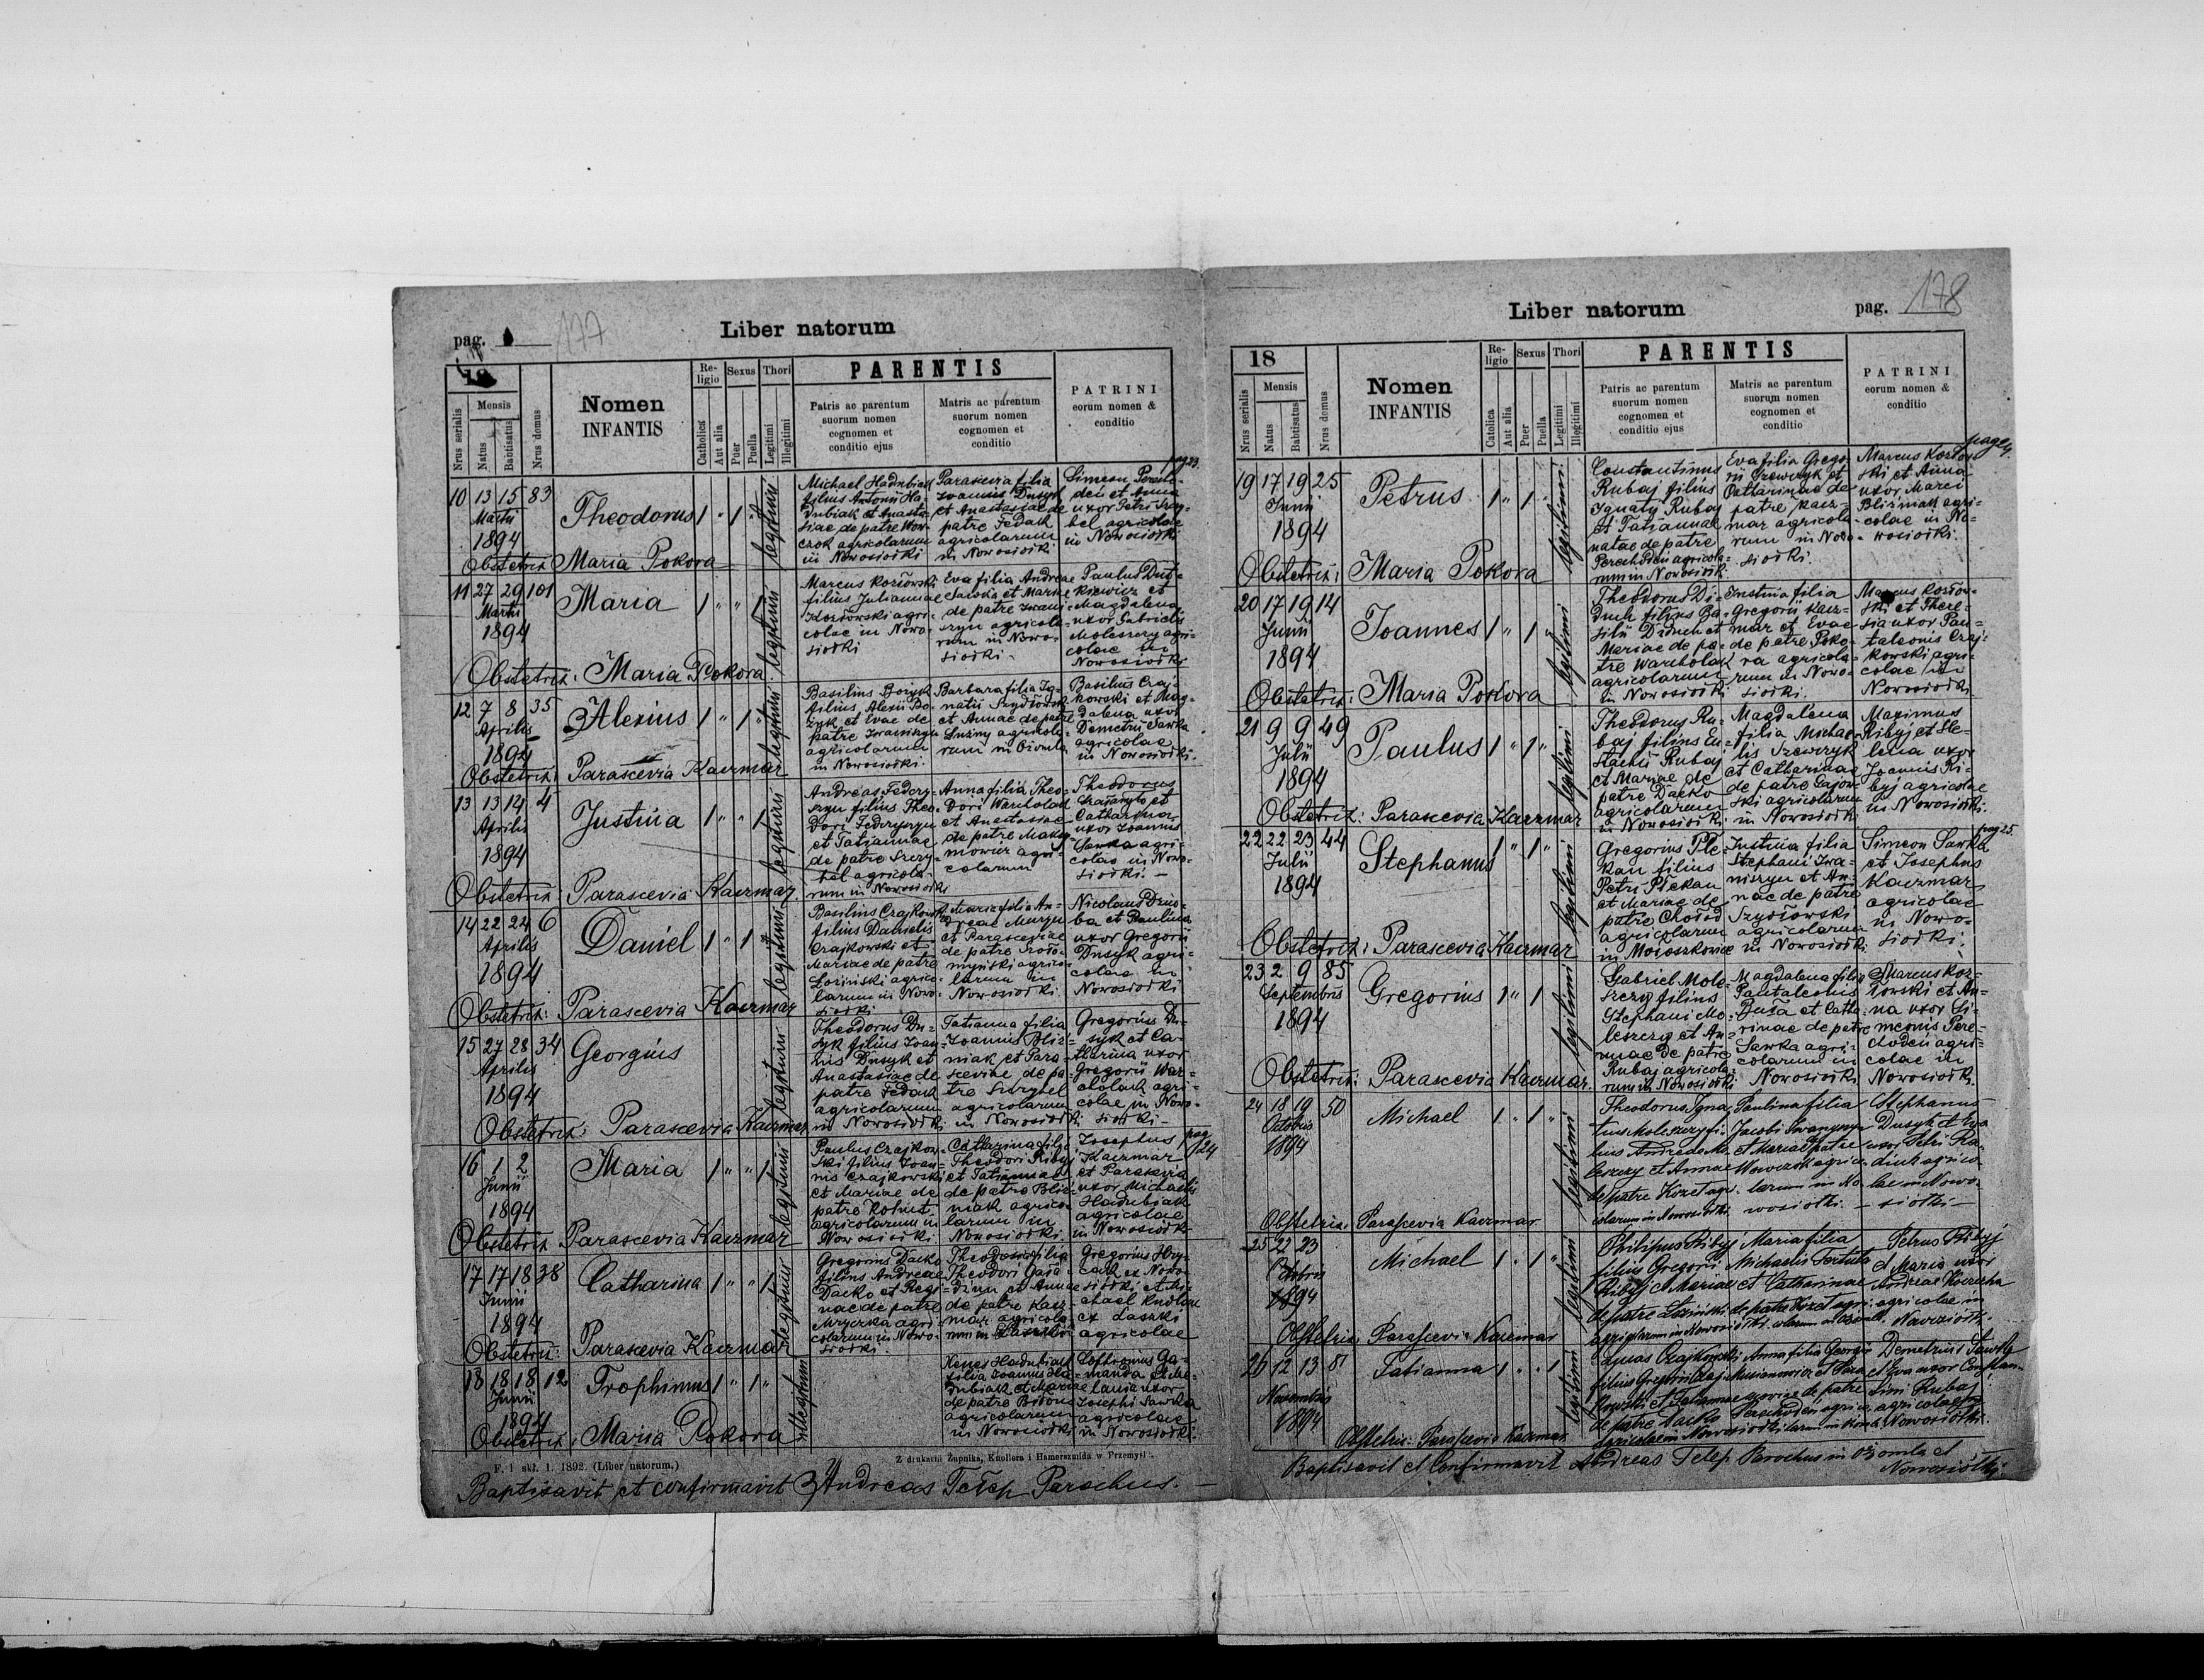 pag. 177
Liber natorum
18
Nrus serialis
Mensis
Natus
Babtisatus
Nrus domus
Nomen
INFANTIS
Religio
Catholica
Aut alia
Sexus
Puer
Puella
Thori
Legitimi
Illegitimi
PARENTIS
Patris ac parentum
suorum nomen
cognomen et
conditio ejus
Matris ac parentum
suorum nomen
cognomen et
conditio
PATRINI
eorum nomen &
conditio
pag 23.
10 13 15 83
Martii
1894
Theodorus 1 " 1 "
legitimi
Michael Hadubiak
filius Antonii Ha-
dubiak et Anasta-
siae de patre Wow-
czok agricolarum
in Nowosiołki
Parascevia filia
Joannis Dusyk
et Anastasiae de
patre Fedak
agricolarum
in Nowosiołki
Simeon Perecho-
den et Anna
uxor Petri
agricolae
in Nowosiołki
Obstetrix Maria Pokora
11 27 29 101
Martii
1894
Maria 1 " " 1
Marcus Kozłowski
filius Juliannae
Kozłowski agri-
colae in Nowo-
siołki
Eva filia Andreae
Sawka et Mariae
de patre Iwani-
szyn agricola-
rum in Nowo-
siołki
Paulus Dut-
kiewicz et
Magdalena
uxor Gabrielis
Moleszczy agri-
colae in
Nowosiołki
Obstetrix: Maria Pokora
12 7 8 35
Aprilis
1894
Alexius 1 " 1 "
Basilius Bożyk
filius Alexii Bo-
żyk et Evae de
patre Iwaniszyn
agricolarum
in Nowosiołki
Barbara filia Ig-
natii Szydłowski
et Annae de patre
Łużny agricola-
rum in Ożomla
Basilius Czaj-
kowski et Mag-
dalena uxor
Demetrii Sawka
agricolae
in Nowosiołki.
Obstetrix: Parascevia Kaczmar
13 13 14 4
Aprilis
1894
Justina 1 " " 1
Andreas Fedczy-
szyn filius Theo-
dori Fedczyszyn
et Tatiannae
de patre Szczy-
bel agricola-
rum in Nowosiołki
Anna filia Theo-
dori Warcholak
et Anastasiae
de patre Maksy-
mowicz agri-
colarum
Theodorus
et
Catharina
uxor Joannis
Sawka agri-
colae in Nowo-
siołki. —
Obstetrix: Parascevia Kaczmar.
14 22 24 6
Aprilis
1894
Daniel 1 " 1 "
Basilius Czajkowski
filius Danielis
Czajkowski et
Mariae de patre
Łoziński agrico-
larum in Nowo-
siołki
Maria filia An-
dreae Muryn
et Parasceviae
de patre
agrico-
larum in
Nowosiołki
Nicolaus Dziu-
ba et Paulina
uxor Gregorii
Dusyk agri-
colae in
Nowosiołki
Obstetrix: Parascevia Kaczmar
15 27 28 34
Aprilis
1894
Georgius
Theodorus Du-
syk filius Joan-
nis Dusyk et
Anastasiae de
patre Fedak
agricolarum
in Nowosiołki
Tatianna filia
Joannis Bliź-
niak et Para-
sceviae de pa-
tre Szczybel
agricolarum
in Nowosiołki
Gregorius Du-
syk et Ca-
tharina uxor
Gregorii War-
cholak agri-
colae in Nowo-
siołki —
Obstetrix: Parascevia Kaczmar
pag 24
16 1 2
Junii
1894
Maria 1 " " 1
Paulus Czajkow-
ski filius Joan-
nis Czajkowski
et Mariae de
patre
agricolarum in
Nowosiołki
Catharina filia
Theodori Ribyj
et Tatiannae
de patre Bliź-
niak agrico-
larum in
Nowosiołki
Josephus
Kaczmar
et Parascevia
uxor Michaelis
Hadubiak
agricolae
in Nowosiołki
Obstetrix Parascevia Kaczmar
17 17 18 38
Junii
1894
Catharina 1 " " 1
Gregorius Dacko
filius Andreae
Dacko et Regi-
nae de patre
Mryczka agri-
colarum in Nowo-
siołki.
Theodosia filia
Theodori
et Annae
de patre Kacz-
mar agricola-
rum in Laszki
Gregorius Hry-
cak ex Nowo-
siołki et Mi-
chael
ex Laszki
agricolae
Obstetrix: Parascevia Kaczmar
18 18 18 12
Junii
1894
Trophimus 1 " 1 "
illegitimi
Xenes Hadubiak
filia Joannis Ha-
dubiak et Mariae
de patre
agricolarum
in Nowosiołki
Sophronius Ga-
manda et Me-
lania uxor
Josephi Sawka
agricolae
in Nowosiołki.
Obstetrix, Maria Pokora
F. 1 skł. 1. 1892. (Liber natorum.)
Z drukarni Żupnika, Knollera i Hamerszmida w Przemyśl.
Baptisavit et confirmavit Andreas Telep Parochus. —
Liber natorum
pag. 178
18
Nrus serialis
Mensis
Natus
Babtisatus
Nrus domus
Nomen
INFANTIS
Religio
Catholica
Aut alia
Sexus
Puer
Puella
Thori
Legitimi
Illegitimi
PARENTIS
Patris ac parentum
suorum nomen
cognomen et
conditio ejus
Matris ac parentum
suorum nomen
cognomen et
conditio
PATRINI
eorum nomen &
conditio
19 17 19 25
Junii
1894
Petrus 1 " 1 "
legitimi
Constantinus
Rubaj filius
Ignaty Rubaj
et Tatiannae
natae de patre
Perechoden agricola-
rum in Nowosiołki
Eva filia Grego-
rii Szewczyk et
Catharinae de
patre Kacz-
mar agricola-
rum in Nowo-
siołki.
Marcus Kozłow-
ski et Anna
uxor Marci
Bliźniak agri-
colae in No-
wosiołki.
Obstetrix: Maria Pokora
20 17 19 14
Junii
1894
Joannes 1 " 1 "
legitimi
Theodorus Di-
duch filius Ba-
silii Diduch et
Mariae de pa-
tre Warcholak
agricolarum
in Nowosiołki
Justina filia
Gregorii Kacz-
mar et Evae
de patre Poko-
ra agricola-
rum in Nowo-
siołki.
Marcus Kozłow-
ski et There-
sia uxor Pan-
taleonis Czaj-
kowski agri-
colae in
Nowosiołki.
Obstetrix: Maria Pokora
21 9 9 49
Julii
1894
Paulus 1 " 1 "
legitimi
Theodorus Ru-
baj filius Eu-
stachii Rubaj
et Mariae de
patre Dacko
agricolarum
in Nowosiołki
Magdalena
filia Michae-
lis Szewczyk
et Catharinae
de patre Gajow-
ski agricolarum
in Nowosiołki
Maximus
Ribyj et He-
lena uxor
Joannis Ri-
byj agricolae
in Nowosiołki.
Obstetrix: Parascevia Kaczmar
pag 25.
22 22 23 44
Julii
1894
Stephanus 1 " 1 "
legitimi
Gregorius Ple-
kan filius
Petri Plekan
et Mariae de
patre
agricolarum
in Mołoszkowice
Justina filia
Stephani Iwa-
niszyn et An-
nae de patre
Szydłowski
agricolarum
in Nowosiołki
Simeon Sawka
et Josephus
Kaczmar
agricolae
in Nowo-
siołki.
Obstetrix: Parascevia Kaczmar
23 2 9 85
Septembris
1894
Gregorius 1 " 1
legitimi
Gabriel Mole-
szczy filius
Stephani Mo-
leszczy et An-
nae de patre
Rubaj agricola-
rum in Nowosiołki
Magdalena filia
Pantaleonis
et Catha-
rinae de patre
Sawka agri-
colarum in
Nowosiołki
Marcus Koz-
łowski et An-
na uxor Si-
meonis Pere-
choden agri-
colae in
Nowosiołki.
Obstetrix: Parascevia Kaczmar.
24 18 19 50
Octobris
1894
Michael 1 . 1 "
legitimi
Theodorus Igna-
tius Moleszczy fi-
lius Andreae Mo-
leszczy et Annae
de patre Kozet agri-
colarum in Nowosiołki
Paulina filia
Jacobi Iwaniszyn
et Mariae de patre
Wowczok agrico-
larum in No-
wosiołki. —
Stephanus
Dusyk et Eva
uxor Petri
agrico-
lae in Nowo-
siołki —
Obstetrix: Parascevia Kaczmar
25 22 23
Octobris
1894
Michael 1 . 1 "
legitimi
Philipus Ribyj
filius Gregorii
Ribyj et Mariae
de patre Łoziński
agricolarum in Nowosiołki.
Maria filia
Michaelis
et Catharinae
de patre Kozet agri-
colarum
Petrus Ribyj
et Maria uxor
Andreae
agricolae in
Nowosiołki.
Obstetrix: Parascevia Kaczmar
26 12 13 81
Novembris
1894
Tatianna 1 . . 1
legitimi
Lucas Czajkowski
filius Gregorii Czaj-
kowski et Tatiannae
de patre Dacko
agricolae in Nowosiołki
Anna filia Georgii
et Para-
sceviae de patre
Perechoden agrico-
larum in Nowosiołki
Demetrius Sawka
et Eva uxor Constan-
tini Rubaj
agricolae in
Nowosiołki.
Obstetrix: Parascevia Kaczmar
Baptisavit et Confirmavit Andreas Telep Parochus in Ożomla et
Nowosiołki